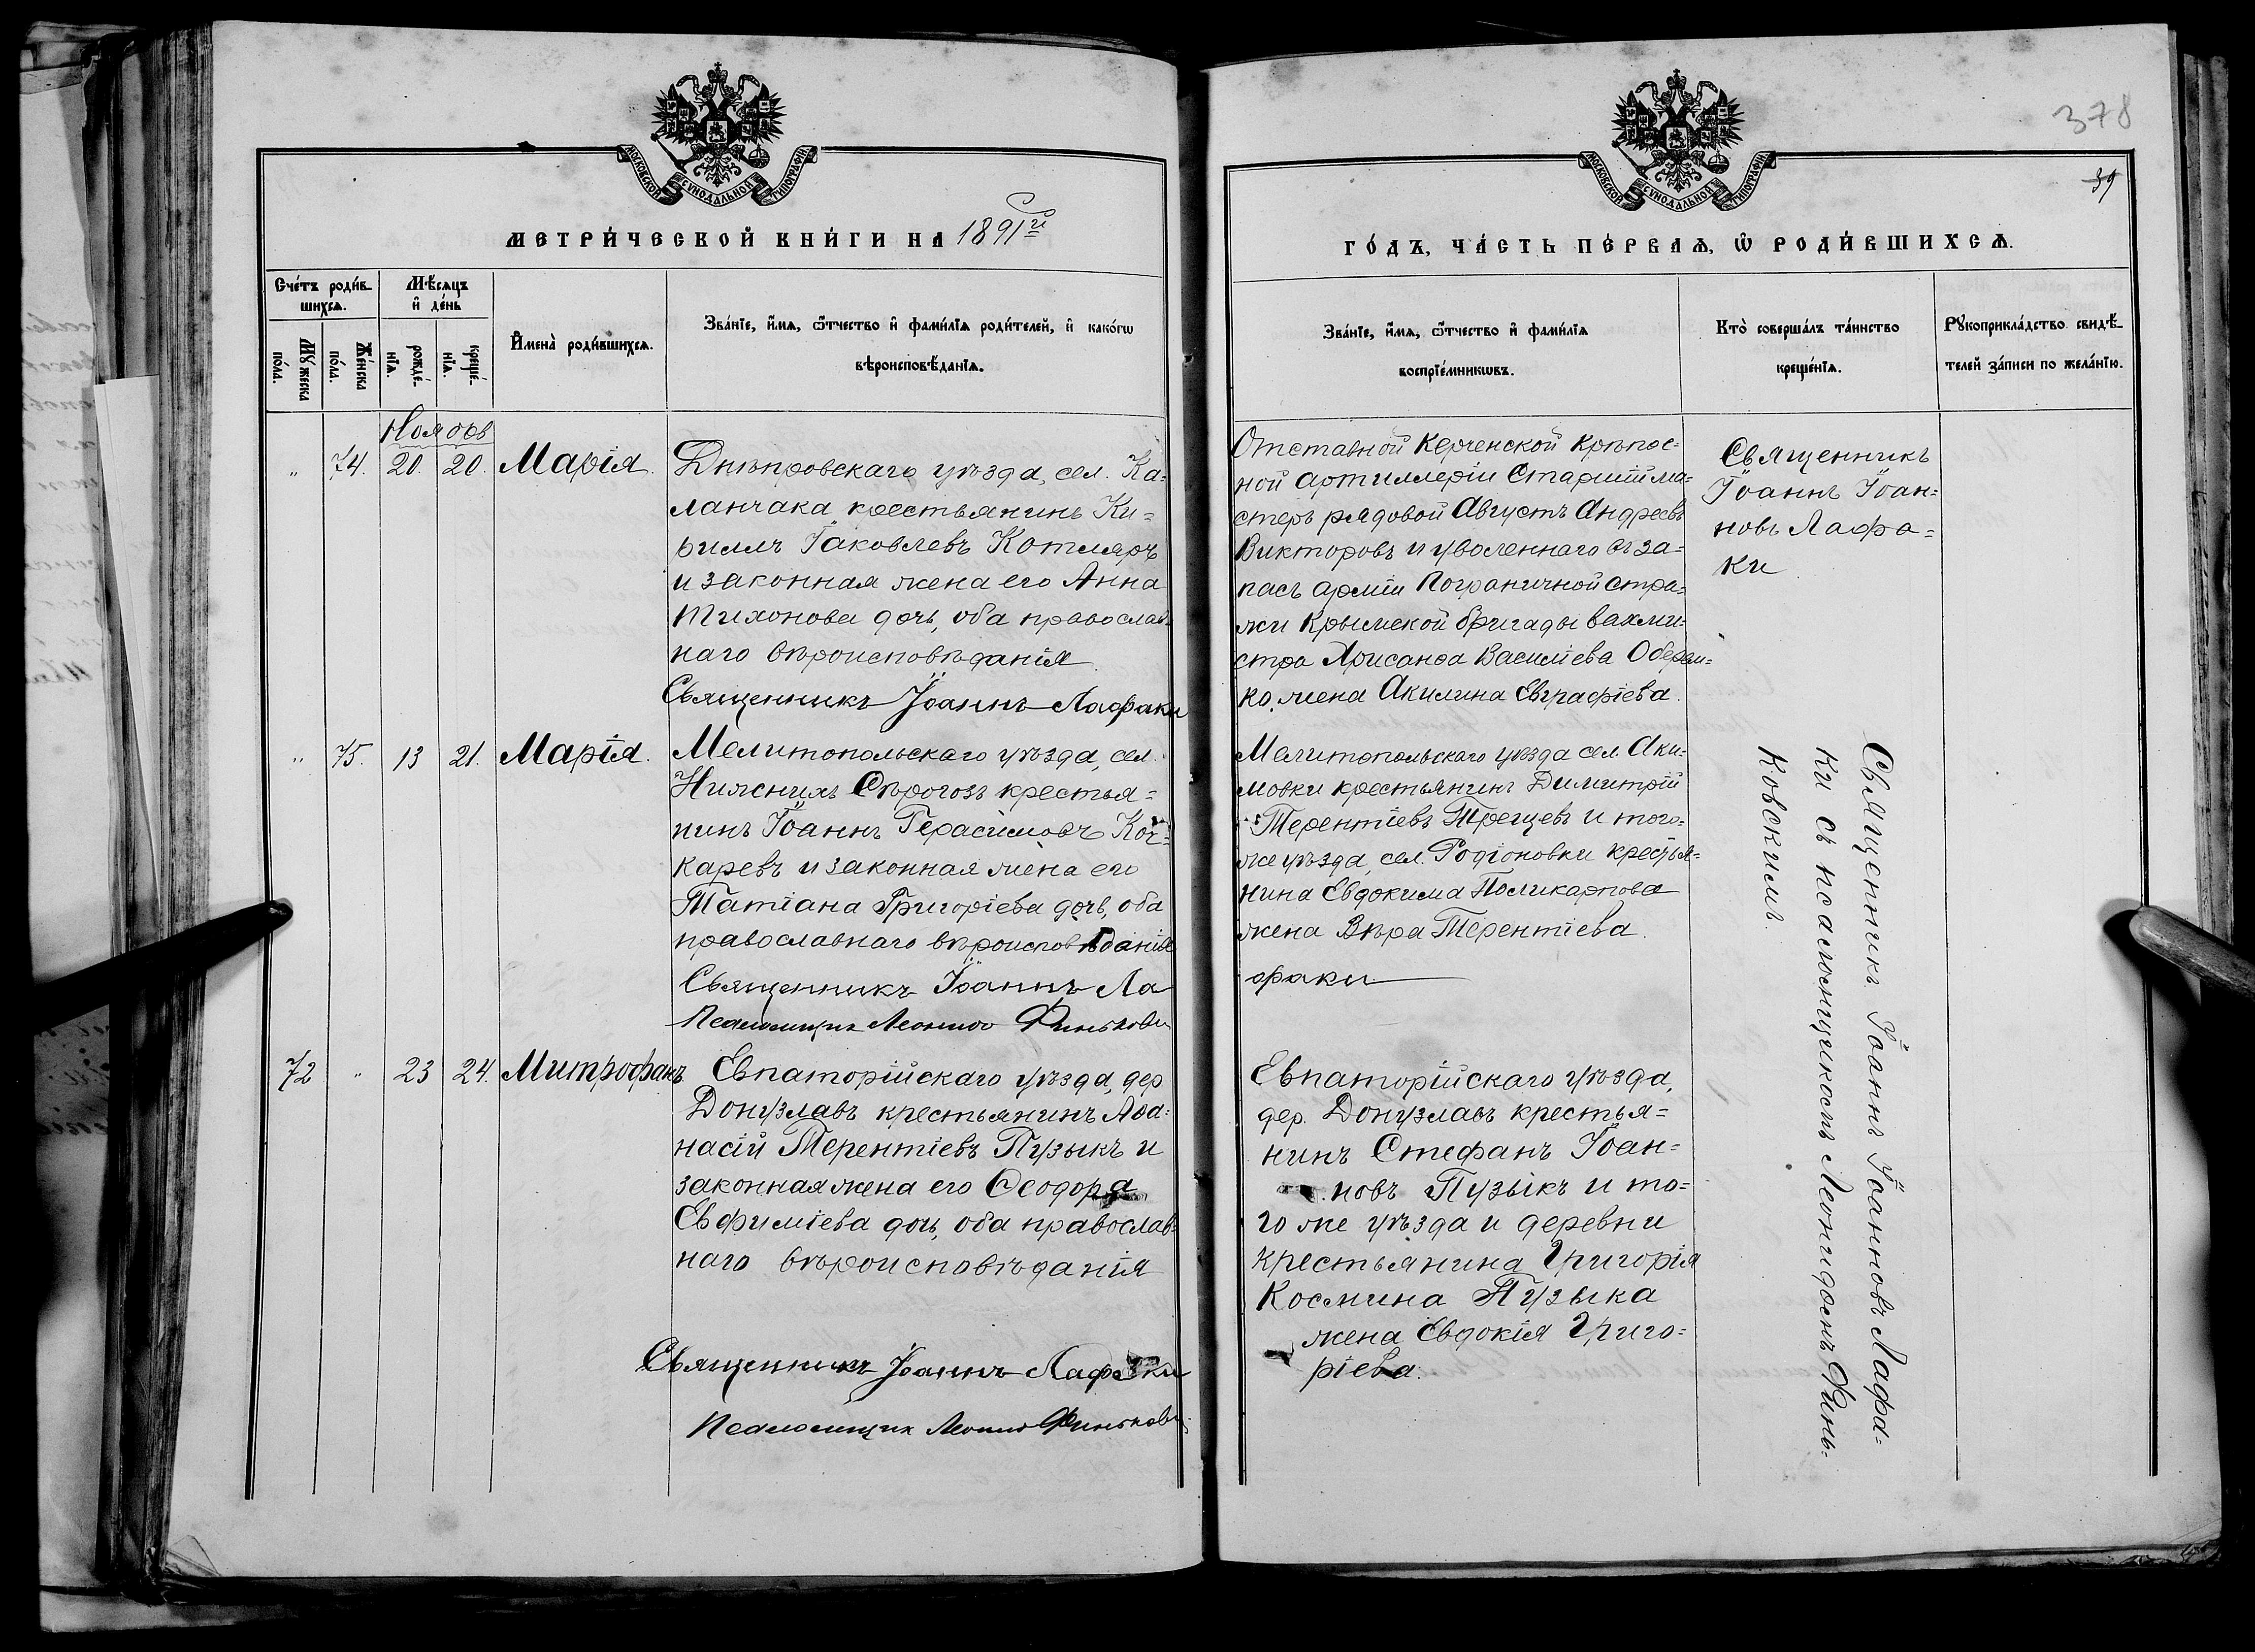 378
39
МОСКОВСКОЙ СѴНОДАЛЬНОЙ ТИПОГРАФІИ
МОСКОВСКОЙ СѴНОДАЛЬНОЙ ТИПОГРАФІИ
МЕТРИ́ЧЕСКОЙ КНИ́ГИ НА 1891й
ГО́ДЪ, ЧА́СТЬ ПЕ́РВАѦ, Ѡ҆ РОДИ́ВШИХСѦ.
Сче́тъ роди́в-
шихсѧ.
Мꙋ́жеска
по́ла.
Же́нска
по́ла.
Мѣ́сѧцъ
и҆ де́нь
рожде́-
нїѧ.
креще́-
нїѧ.
И҆мена̀ роди́вшихсѧ.
Зва́нїе, и҆́мѧ, ѻ҆́тчество и҆ фами́лїѧ роди́телей, и҆ како́гѡ
вѣроисповѣ́данїѧ.
Зва́нїе, и҆́мѧ, ѻ҆́тчество и҆ фами́лїѧ
воспрїе́мникѡвъ.
Кто̀ соверша́лъ та́инство
креще́нїѧ.
Рꙋкоприкла́дство свидѣ́-
телей за́писи по жела́нїю.
Ноябрь
" 74. 20. 20. Марія.
Днѣпровскаго уѣзда, сел. Ка=
ланчака крестьянинъ Ки=
риллъ Іаковлевъ Котляръ
и законная жена его Анна
Тихонова дочь, оба православ=
наго вѣроисповѣданія.
Священникъ Іоаннъ Лафаки
Отставной Керченской крѣпос=
ной артиллеріи Старшій ма=
стеръ рядовой Августъ Андреевъ
Викторовъ и уволеннаго въ за=
пасъ арміи Пограничной стра=
жи Крымской бригады вахми=
стра Хрисанѳа Василіева
ко, жена Акилина Евграфіева.
Священникъ
Іоаннъ Іоан=
новъ Лафа=
ки
" 75. 13 21. Марія.
Мелитопольскаго уѣзда, сел.
Нижнихъ Сѣрогозъ крестья=
нинъ Іоаннъ Герасимовъ Коч=
каревъ и законная жена его
Татіана Григоріева дочь, оба
православнаго вѣроисповѣданія
Священникъ Іоаннъ Ла
Псаломщикъ Леонидъ Финьковскі
Мелитопольскаго уѣзда сел. Аки=
мовки крестьянинъ Димитрій
Терентіевъ Трещевъ и того=
же уѣзда, сел. Родіоновки крестья=
нина Евдокима Поликарпова
жена Вѣра Терентіева.
факи
Священникъ Іоаннъ Іоанновъ Лафа=
ки съ псаломщикомъ Леонидомъ Финь=
ковскимъ.
72 " 23 24. Митрофанъ
Евпаторійскаго уѣзда, дер.
Донузлавъ крестьянинъ Аѳа=
насій Терентіевъ Пузыкъ и
законная жена его Ѳеодора
Евфиміева дочь, оба православ=
наго вѣроисповѣданія
Священникъ Іоаннъ Лафаки
Псаломщикъ Леонид Финьковскі
Евпаторійскаго уѣзда,
дер. Донузлавъ крестья=
нинъ Стефанъ Іоан=
новъ Пузыкъ и то=
го же уѣзда и деревни
крестьянина Григорія
Космина Пузыка
жена Евдокія Григо=
ріева.